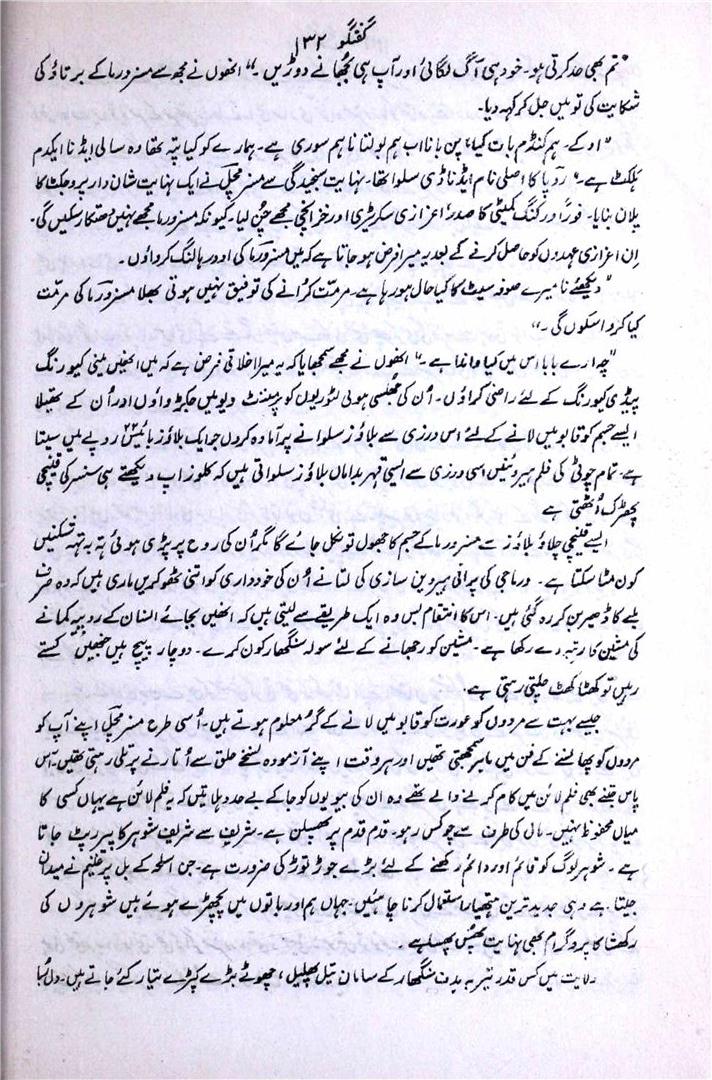 گفتگو ۱۳۲
"تم بھی حد کرتی ہو۔ خود ہی آگ لگائی اور آپ ہی بجھانے دوڑیں۔" انھوں نے مجھ سے مسز ورما کے برتاؤ کی
شکایت کی تو میں جل کر کہہ دیا۔
"او کے۔ ہم کنڈم بات کیا، پن بابا اب ہم بولتا نا ہم سوری ہے۔ ہمارے کو کیا پتہ تھا وہ سالی ایڈنا ایکدم
کلکٹ ہے۔" رویا کا اصلی نام ایڈنا ڈی سلوا تھا۔ نہایت سنجیدگی سے مسز مچل نے ایک نہایت شان دار پروجکٹ کا
پلان بنایا۔ فوراً ورکنگ کمیٹی کا صدر، اعزازی سکریٹری اور خزانچی مجھے چُن لیا۔ کیونکہ مسز ورما مجھے نہیں دھتکار سکیں گی۔
اِن اعزازی عہدوں کو حاصل کرنے کے بعد یہ میرا فرض ہو جاتا ہے کہ میں مسز ورما کی اوورہالنگ کرواؤں۔
"دیکھئے نا میرے صوفہ سیٹ کا کیا حال ہو رہا ہے۔ مرمّت کرانے کی توفیق نہیں ہوتی بھلا مسز ورما کی مرمّت
کیا کروا سکوں گی۔"
"چہ ارے بابا اس میں کیا واندا ہے۔" انھوں نے مجھے سمجھایا کہ یہ میرا اخلاقی فرض ہے کہ میں انھیں مینی کیورنگ
پیڈی کیورنگ کے لئے راضی کراؤں۔ اُن کی جھلسی ہوئی لٹوریوں کو پرمننٹ ویو میں جکڑواؤں اور اُن کے تھیلا
ایسے جسم کو قابو میں لانے کے لئے اس درزی سے بلاؤز سلوانے پر آمادہ کروں جو ایک بلاؤز بائیس ۲۲ روپے میں سیتا
ہے۔ تمام چوٹی کی فلم ہیروئنیں اسی درزی سے ایسی قہر بداماں بلاؤز سلواتی ہیں کہ کلوز اپ دیکھتے ہی سنسر کی قینچی
پھڑک اُٹھتی ہے
ایسے قینچی چلاؤ بلاؤز سے مسز ورما کے جسم کا جھول تو نکل جائے گا مگر اُن کی روح پر پڑی ہوئی تہہ بہ تہہ شکنیں
کون مٹا سکتا ہے۔ ورما جی کی پرانی ہیروین سازی کی لت نے اُن کی خودداری کو اتنی ٹھوکریں ماری ہیں کہ وہ صرف
ملبے کا ڈھیر بن کر رہ گئی ہیں۔ اس کا انتقام بس وہ ایک طریقے سے لیتی ہیں کہ انھیں بجائے انسان کے روپیہ کمانے
کی مشین کا رتبہ دے رکھا ہے۔ مشین کو رجھانے کے لئے سولہ سنگھار کون کرے۔ دو چار پیچ ہیں جنھیں کستے
رہیں تو کھٹا کھٹ چلتی رہتی ہے۔
جیسے بہت سے مردوں کو عورت کو قابو میں لانے کے گُر معلوم ہوتے ہیں۔ اُسی طرح مسز مچل اپنے آپ کو
مردوں کو پھانسنے کے فن میں ماہر سمجھتی تھیں اور ہر وقت اپنے آزمودہ نسخے حلق سے اُتارنے پر تلی رہتی تھیں۔ آس
پاس جتنے بھی فلم لائن میں کام کرنے والے تھے وہ ان کی بیویوں کو جا کے بے حد دہلاتیں کہ یہ فلم لائن ہے یہاں کسی کا
میاں محفوظ نہیں۔ مالی کی طرف سے چوکس رہو۔ قدم قدم پر پھسلن ہے۔ شریف سے شریف شوہر کا پیر رپٹ جاتا
ہے۔ شوہر لوگ کو قائم اور دائم رکھنے کے لئے بڑے جوڑ توڑ کی ضرورت ہے۔ جن اسلحہ کے بل پر غنیم نے میدان
جیتا ہے وہی جدید ترین ہتھیار استعمال کرنا چاہئیں۔ جہاں ہم اور باتوں میں پچھڑے ہوئے ہیں شوہروں کی
رکھشا کا پروگرام بھی نہایت پھس پھسا ہے
ولایت میں کس قدر تیر بہ ہدف سنگھار کے سامان تیل پھلیل، چھوٹے بڑے کپڑے تیار کئے جاتے ہیں۔ دل لُبھا